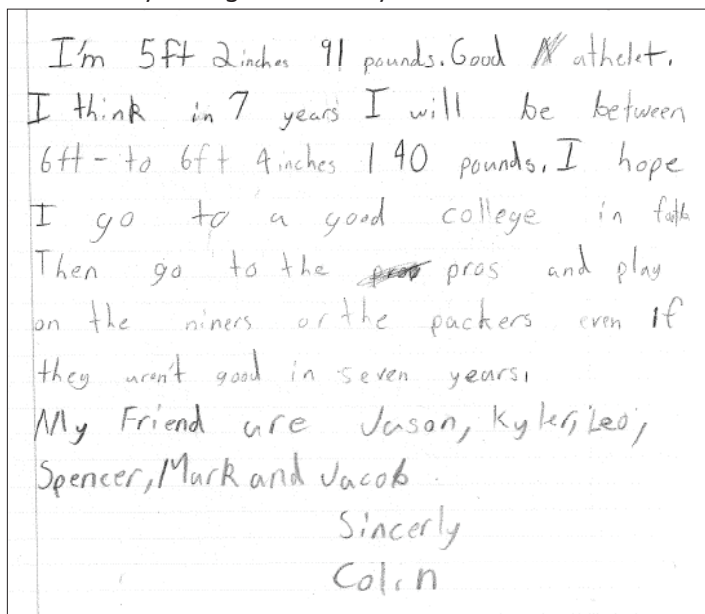 I'm 5ft 2inches 91 pounds. Good athelet.
I think in 7 years I will be between
6ft - to 6ft 4inches 140 pounds. I hope
I go to a good college in
Then go to the pros and play
on the niners or the packers even if
they aren't good in seven years.
My Friend are Jason, Kyler, Leo,
Spencer, Mark and Jacob
Sincerly
Colin